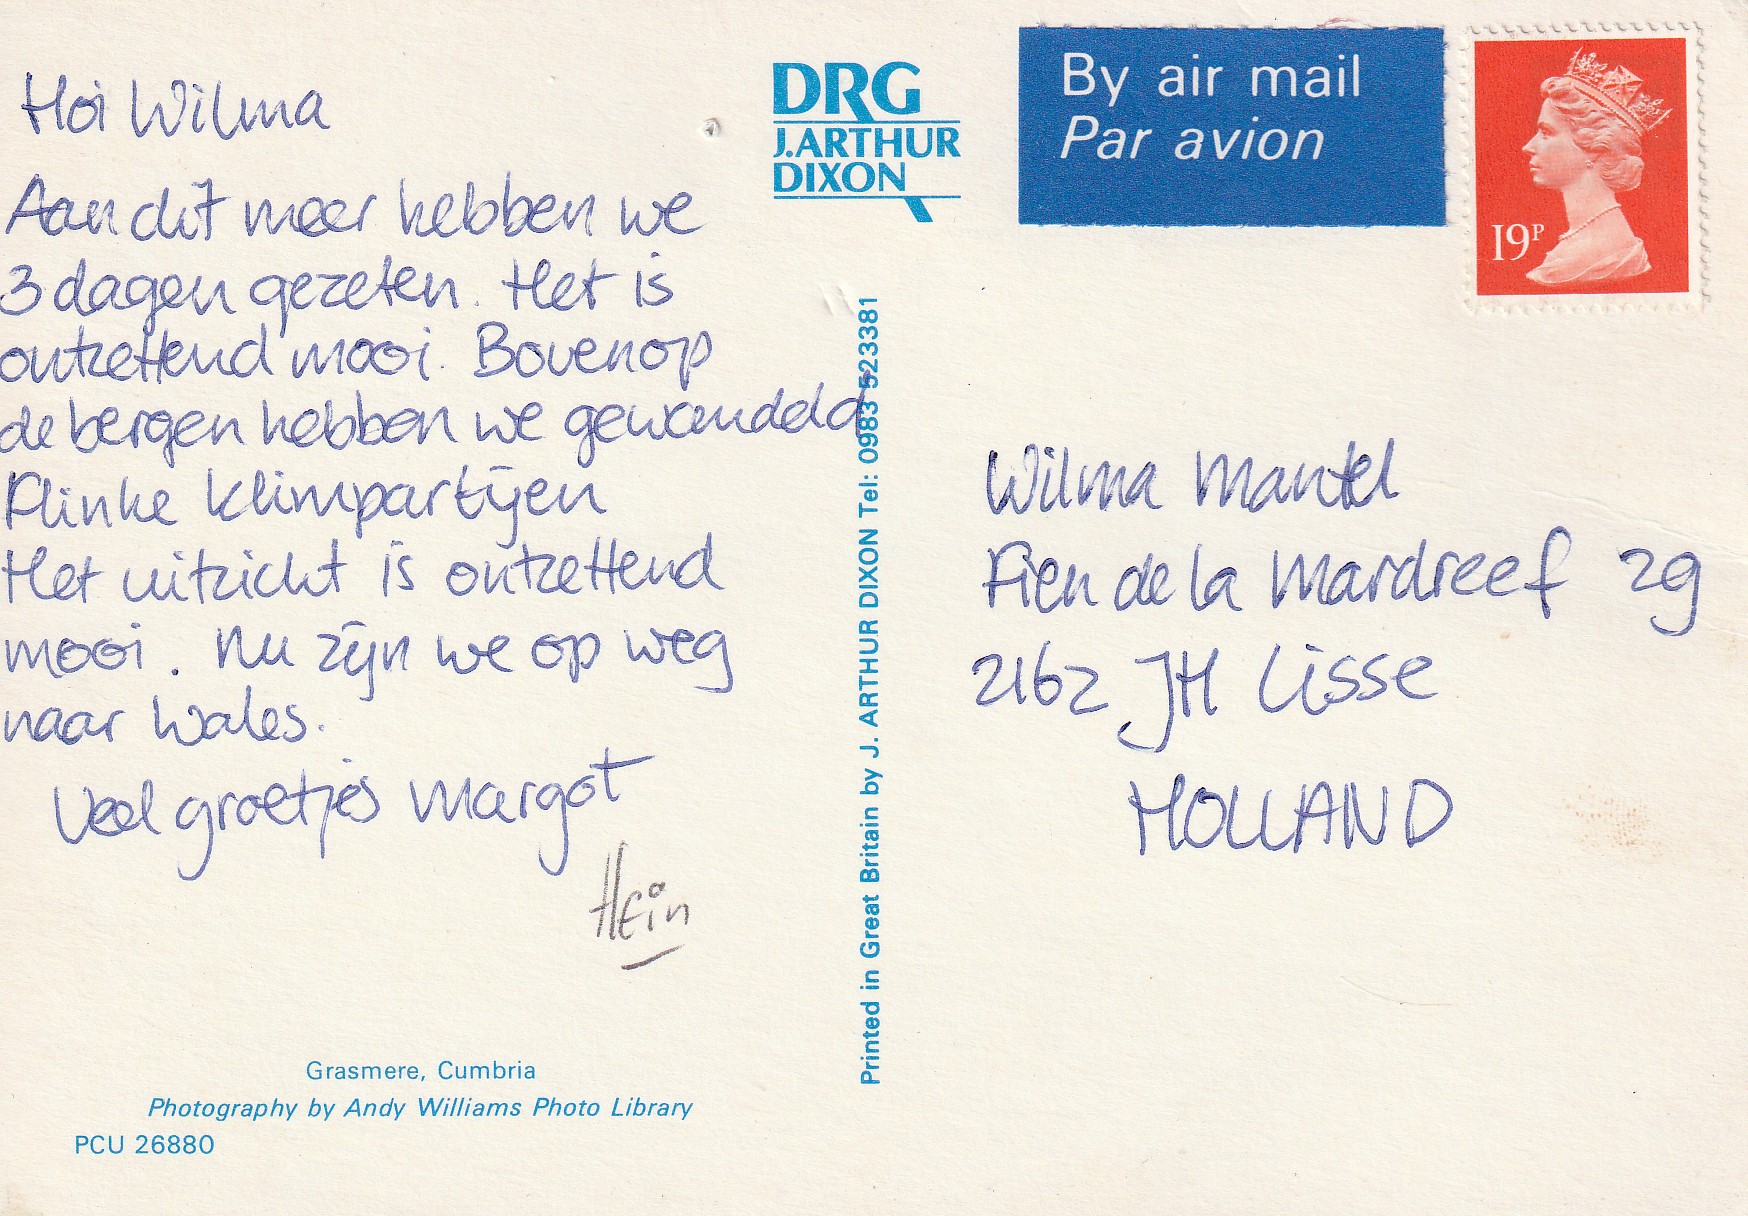 Hoi Wilma
Aan dit meer hebben we
3 dagen gezeten. Het is
ontzettend mooi. Bovenop
de bergen hebben we gewandeld
Flinke klimpartijen
Het uitzicht is ontzettend
mooi. Nu zijn we op weg
naar Wales.
Veel groetjes Margot
Hein
Grasmere, Cumbria
Photography by Andy Williams Photo Library
PCU 26880
DRG
J.ARTHUR
DIXON
Printed in Great Britain by J. ARTHUR DIXON Tel: 0983 523381
By air mail
Par avion
19P
Wilma Mantel
Fien de la Mardreef 29
2162 JH Lisse
HOLLAND